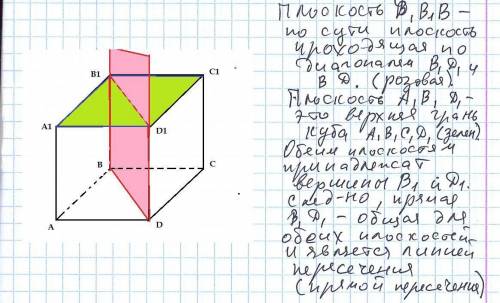 B1
C1
A1
D1
B
C
A
D
Плоскость B₁B₁B –
по сути плоскость
проходящая по
диагоналям B₁D₁ и
BD. (розовая).
Плоскость A₁B₁D₁–
это верхняя грань
куба A₁B₁C₁D₁ (зелен)
Обеим плоскостям
принадлежат
вершины B₁ и D₁.
след-но, прямая
B₁D₁ – общая для
обеих плоскостей
и является линией
пересечения
(прямой пересечения)